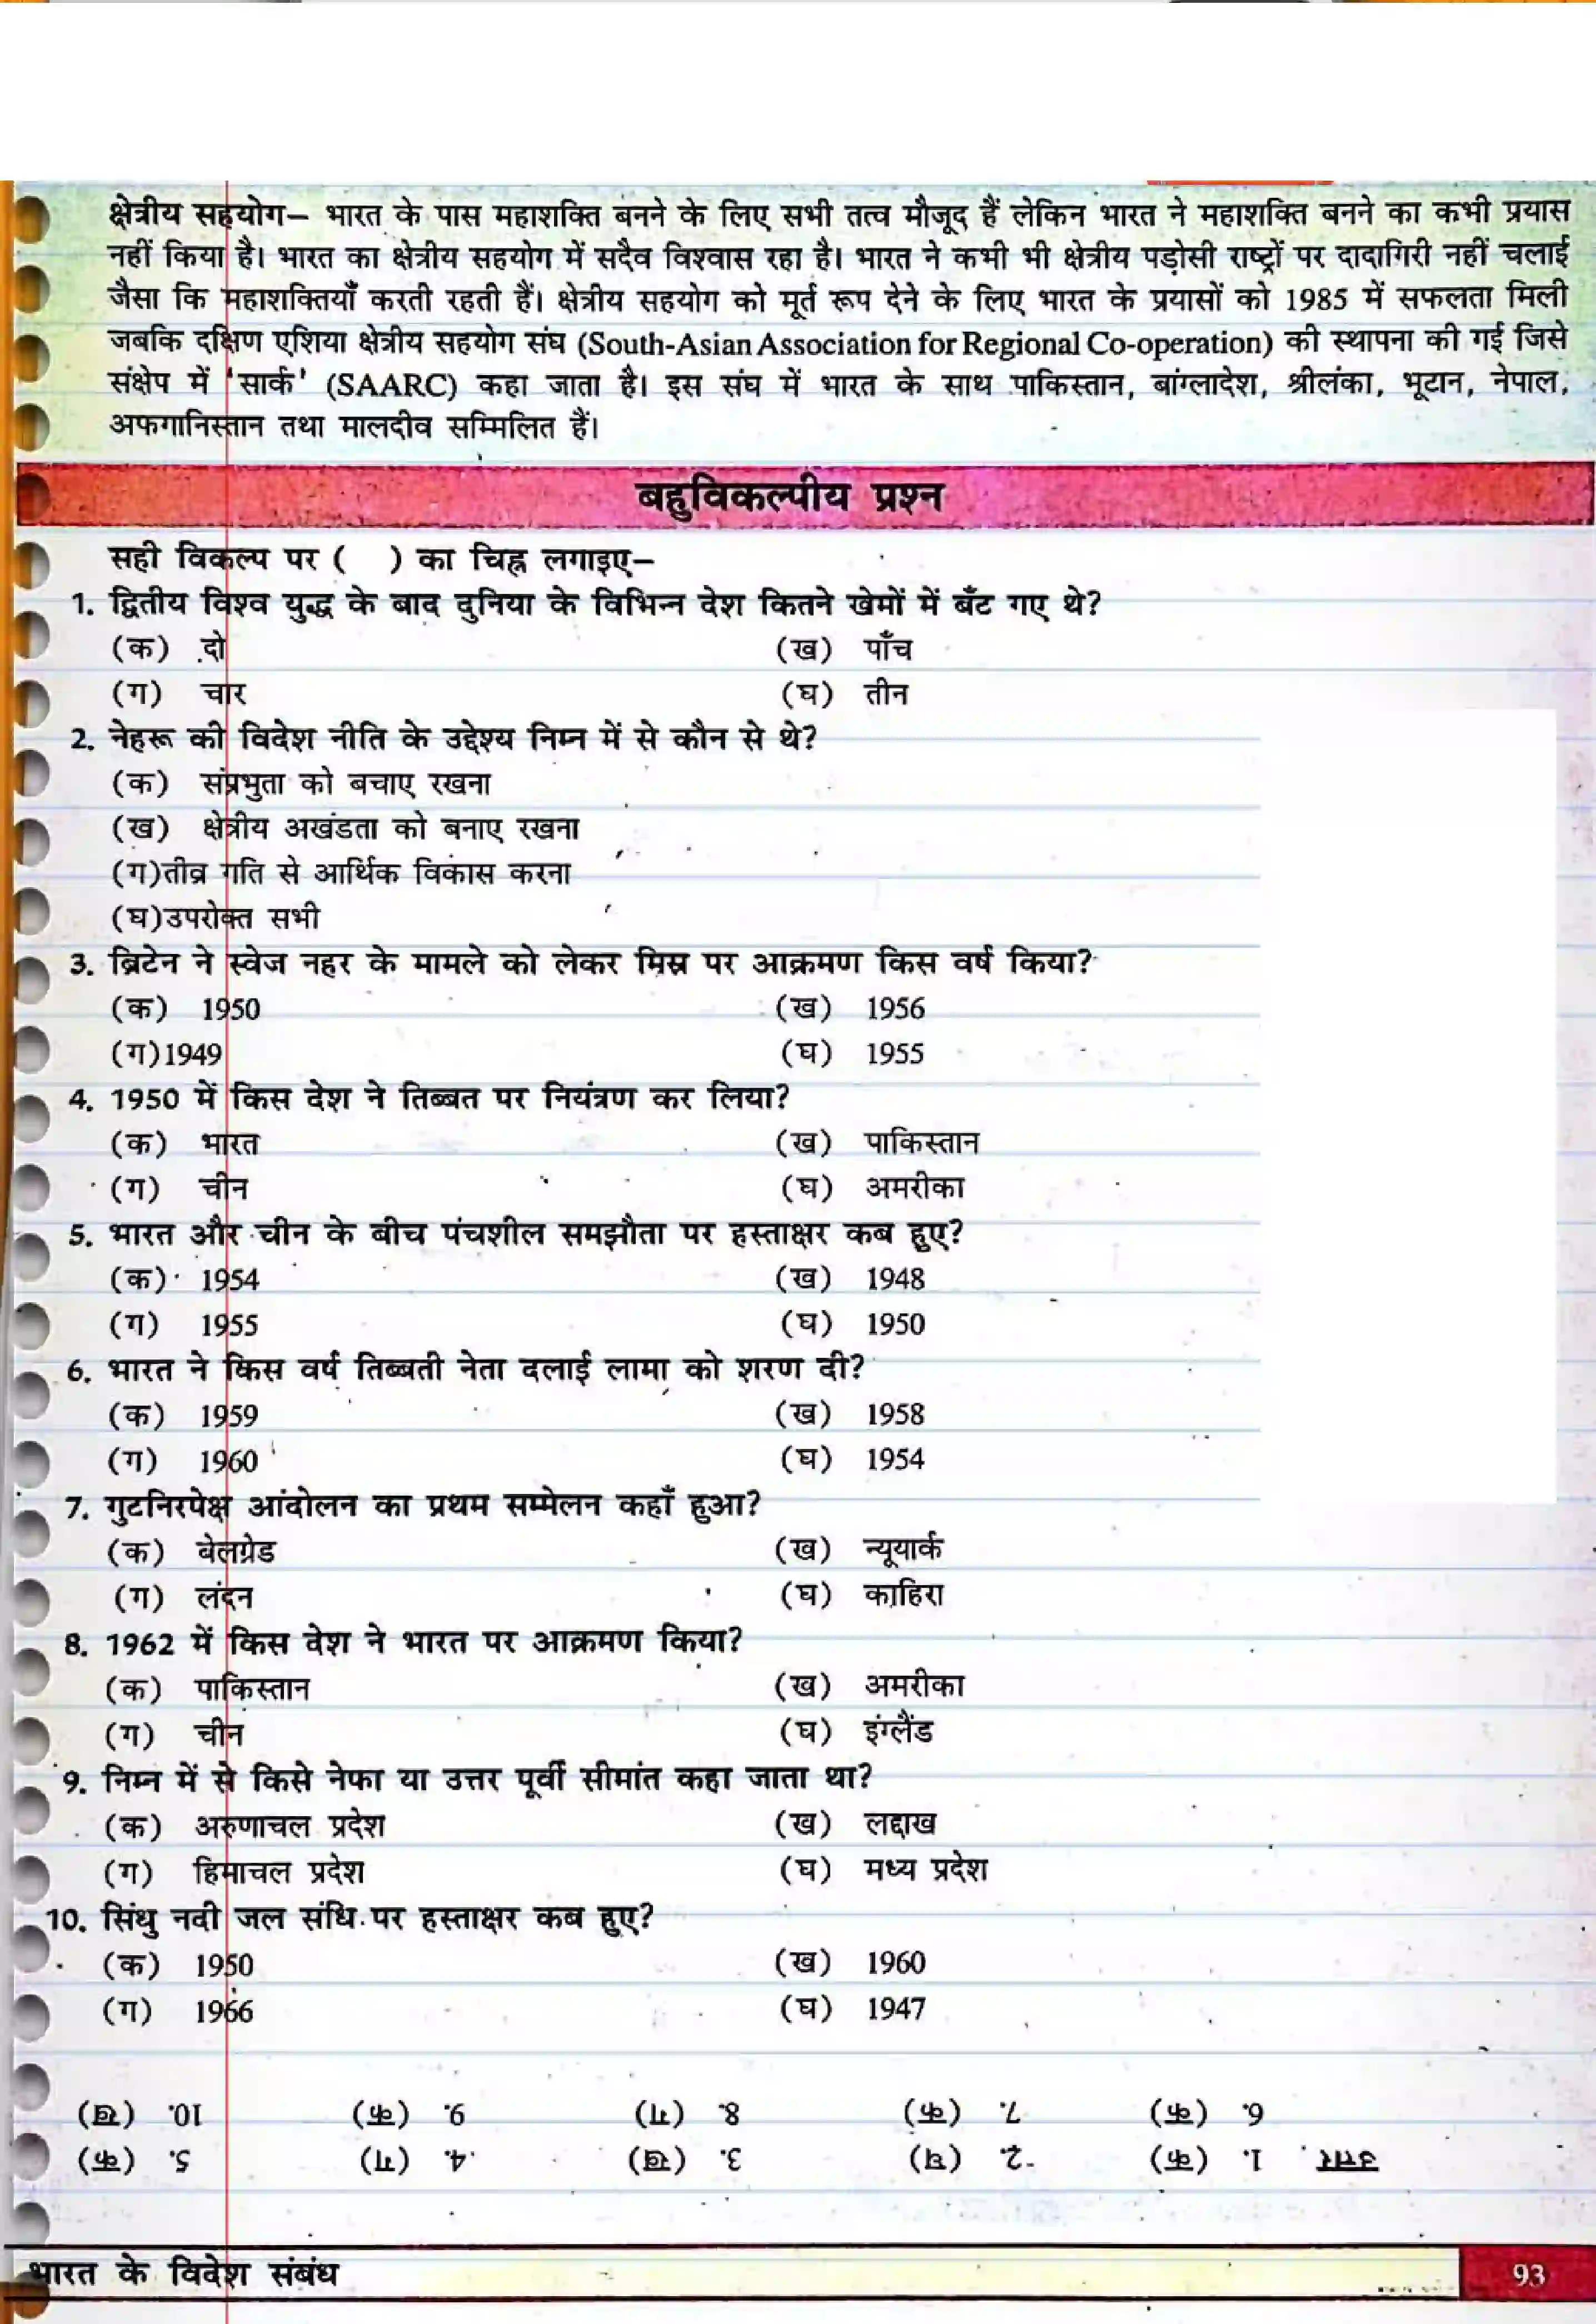 क्षेत्रीय सहयोग– भारत के पास महाशक्ति बनने के लिए सभी तत्व मौजूद हैं लेकिन भारत ने महाशक्ति बनने का कभी प्रयास
नहीं किया है। भारत का क्षेत्रीय सहयोग में सदैव विश्वास रहा है। भारत ने कभी भी क्षेत्रीय पड़ोसी राष्ट्रों पर दादागिरी नहीं चलाई
जैसा कि महाशक्तियाँ करती रहती हैं। क्षेत्रीय सहयोग को मूर्त रूप देने के लिए भारत के प्रयासों को 1985 में सफलता मिली
जबकि दक्षिण एशिया क्षेत्रीय सहयोग संघ (South-Asian Association for Regional Co-operation) की स्थापना की गई जिसे
संक्षेप में 'सार्क' (SAARC) कहा जाता है। इस संघ में भारत के साथ पाकिस्तान, बांग्लादेश, श्रीलंका, भूटान, नेपाल,
अफगानिस्तान तथा मालदीव सम्मिलित हैं।
बहुविकल्पीय प्रश्न
सही विकल्प पर ( ) का चिह्न लगाइए–
1. द्वितीय विश्व युद्ध के बाद दुनिया के विभिन्न देश कितने खेमों में बँट गए थे?
(क) दो (ख) पाँच
(ग) चार (घ) तीन
2. नेहरू की विदेश नीति के उद्देश्य निम्न में से कौन से थे?
(क) संप्रभुता को बचाए रखना
(ख) क्षेत्रीय अखंडता को बनाए रखना
(ग)तीव्र गति से आर्थिक विकास करना
(घ)उपरोक्त सभी
3. ब्रिटेन ने स्वेज नहर के मामले को लेकर मिस्र पर आक्रमण किस वर्ष किया?
(क) 1950 (ख) 1956
(ग)1949 (घ) 1955
4. 1950 में किस देश ने तिब्बत पर नियंत्रण कर लिया?
(क) भारत (ख) पाकिस्तान
(ग) चीन (घ) अमरीका
5. भारत और चीन के बीच पंचशील समझौता पर हस्ताक्षर कब हुए?
(क) 1954 (ख) 1948
(ग) 1955 (घ) 1950
6. भारत ने किस वर्ष तिब्बती नेता दलाई लामा को शरण दी?
(क) 1959 (ख) 1958
(ग) 1960 (घ) 1954
7. गुटनिरपेक्ष आंदोलन का प्रथम सम्मेलन कहाँ हुआ?
(क) बेलग्रेड (ख) न्यूयार्क
(ग) लंदन (घ) काहिरा
8. 1962 में किस देश ने भारत पर आक्रमण किया?
(क) पाकिस्तान (ख) अमरीका
(ग) चीन (घ) इंग्लैंड
9. निम्न में से किसे नेफा या उत्तर पूर्वी सीमांत कहा जाता था?
(क) अरुणाचल प्रदेश (ख) लद्दाख
(ग) हिमाचल प्रदेश (घ) मध्य प्रदेश
10. सिंधु नदी जल संधि पर हस्ताक्षर कब हुए?
(क) 1950 (ख) 1960
(ग) 1966 (घ) 1947
उत्तर 1. (क) 2. (घ) 3. (ख) 4. (ग) 5. (क)
6. (क) 7. (क) 8. (ग) 9. (क) 10. (ख)
भारत के विदेश संबंध 93